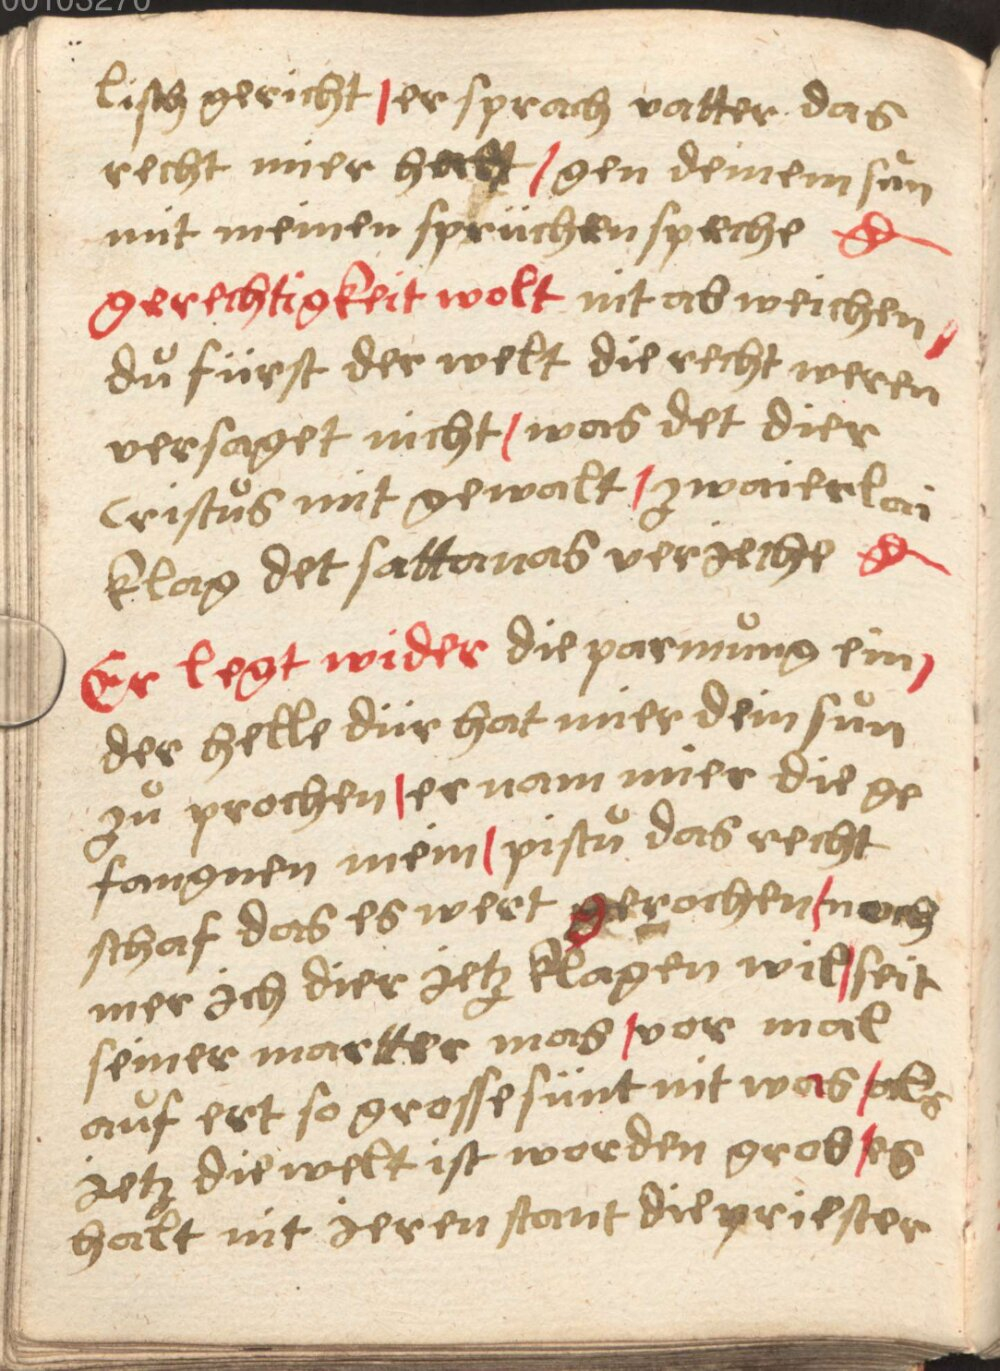 00103270
lisch gericht / er sprach vatter das
recht mier halt / gen deinem sůn
mit meinen sprüchen speche
gerechtigkeit wolt nit ab weichen /
dů fürst der welt die recht weren
versaget nicht / was det dier
Cristůs mit gewalt / zwaierlai
klag det sattanas verjeche
Er legt wider die parmůng ein /
der helle dür hat mier dein sůn
zů prochen / er nam mier die ge
fangnen mein / pistů das recht
schaf das es wert gerochen / noch
mer jch dier jetz klagen wil / seit
seiner martter mas / vor mal
aůf ert so grosse sünt nit was / als
jetz die welt ist worden grob / es
halt nit jeren stant die priester